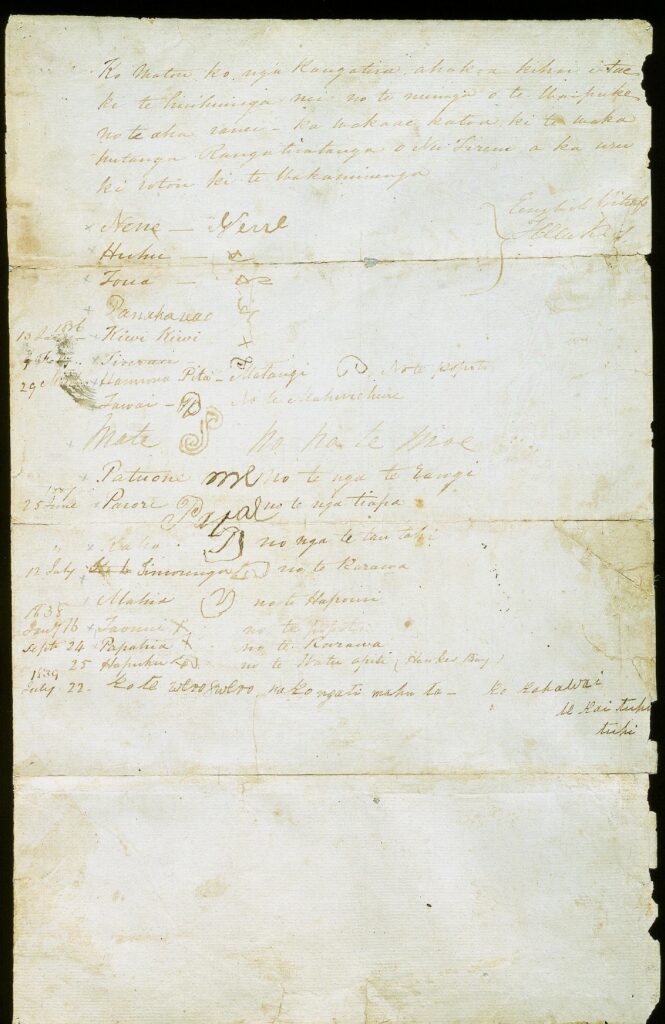 Ko Matou ko nga Rangatira ahakoa kihai i tae
ki te huihuinga nei no te nuinga o te Waipuke
no te aha ranei - ka wakaae katoa ki te waka
putanga Rangatiratanga o Nu Tireni a ka uru
ki roton ki te Wakaminenga
Nene -
Huhu -
Tona -
Panakareao
13 1836 Kiwi Kiwi
Tirerau -
29 Hamuna Pita - Matangi No te popoto
Tawai - No te Mahurehure
Mate
Patuone no te nga te Rangi
25 June Parore no te nga tiapa
Kaha no nga te tau tahi
12 July no te Rarawa
Mahia no te Hapouri
1838
Jany 16 Taonui no te popoto
Sept 24 Papahia no te Rarawa
25 Hapuku no te Watu apiti (Hawkes Bay)
1839
July 22. Ko te wero wero na ko ngati mahu ta - ko kahawai
te kai tuhi
tuhi